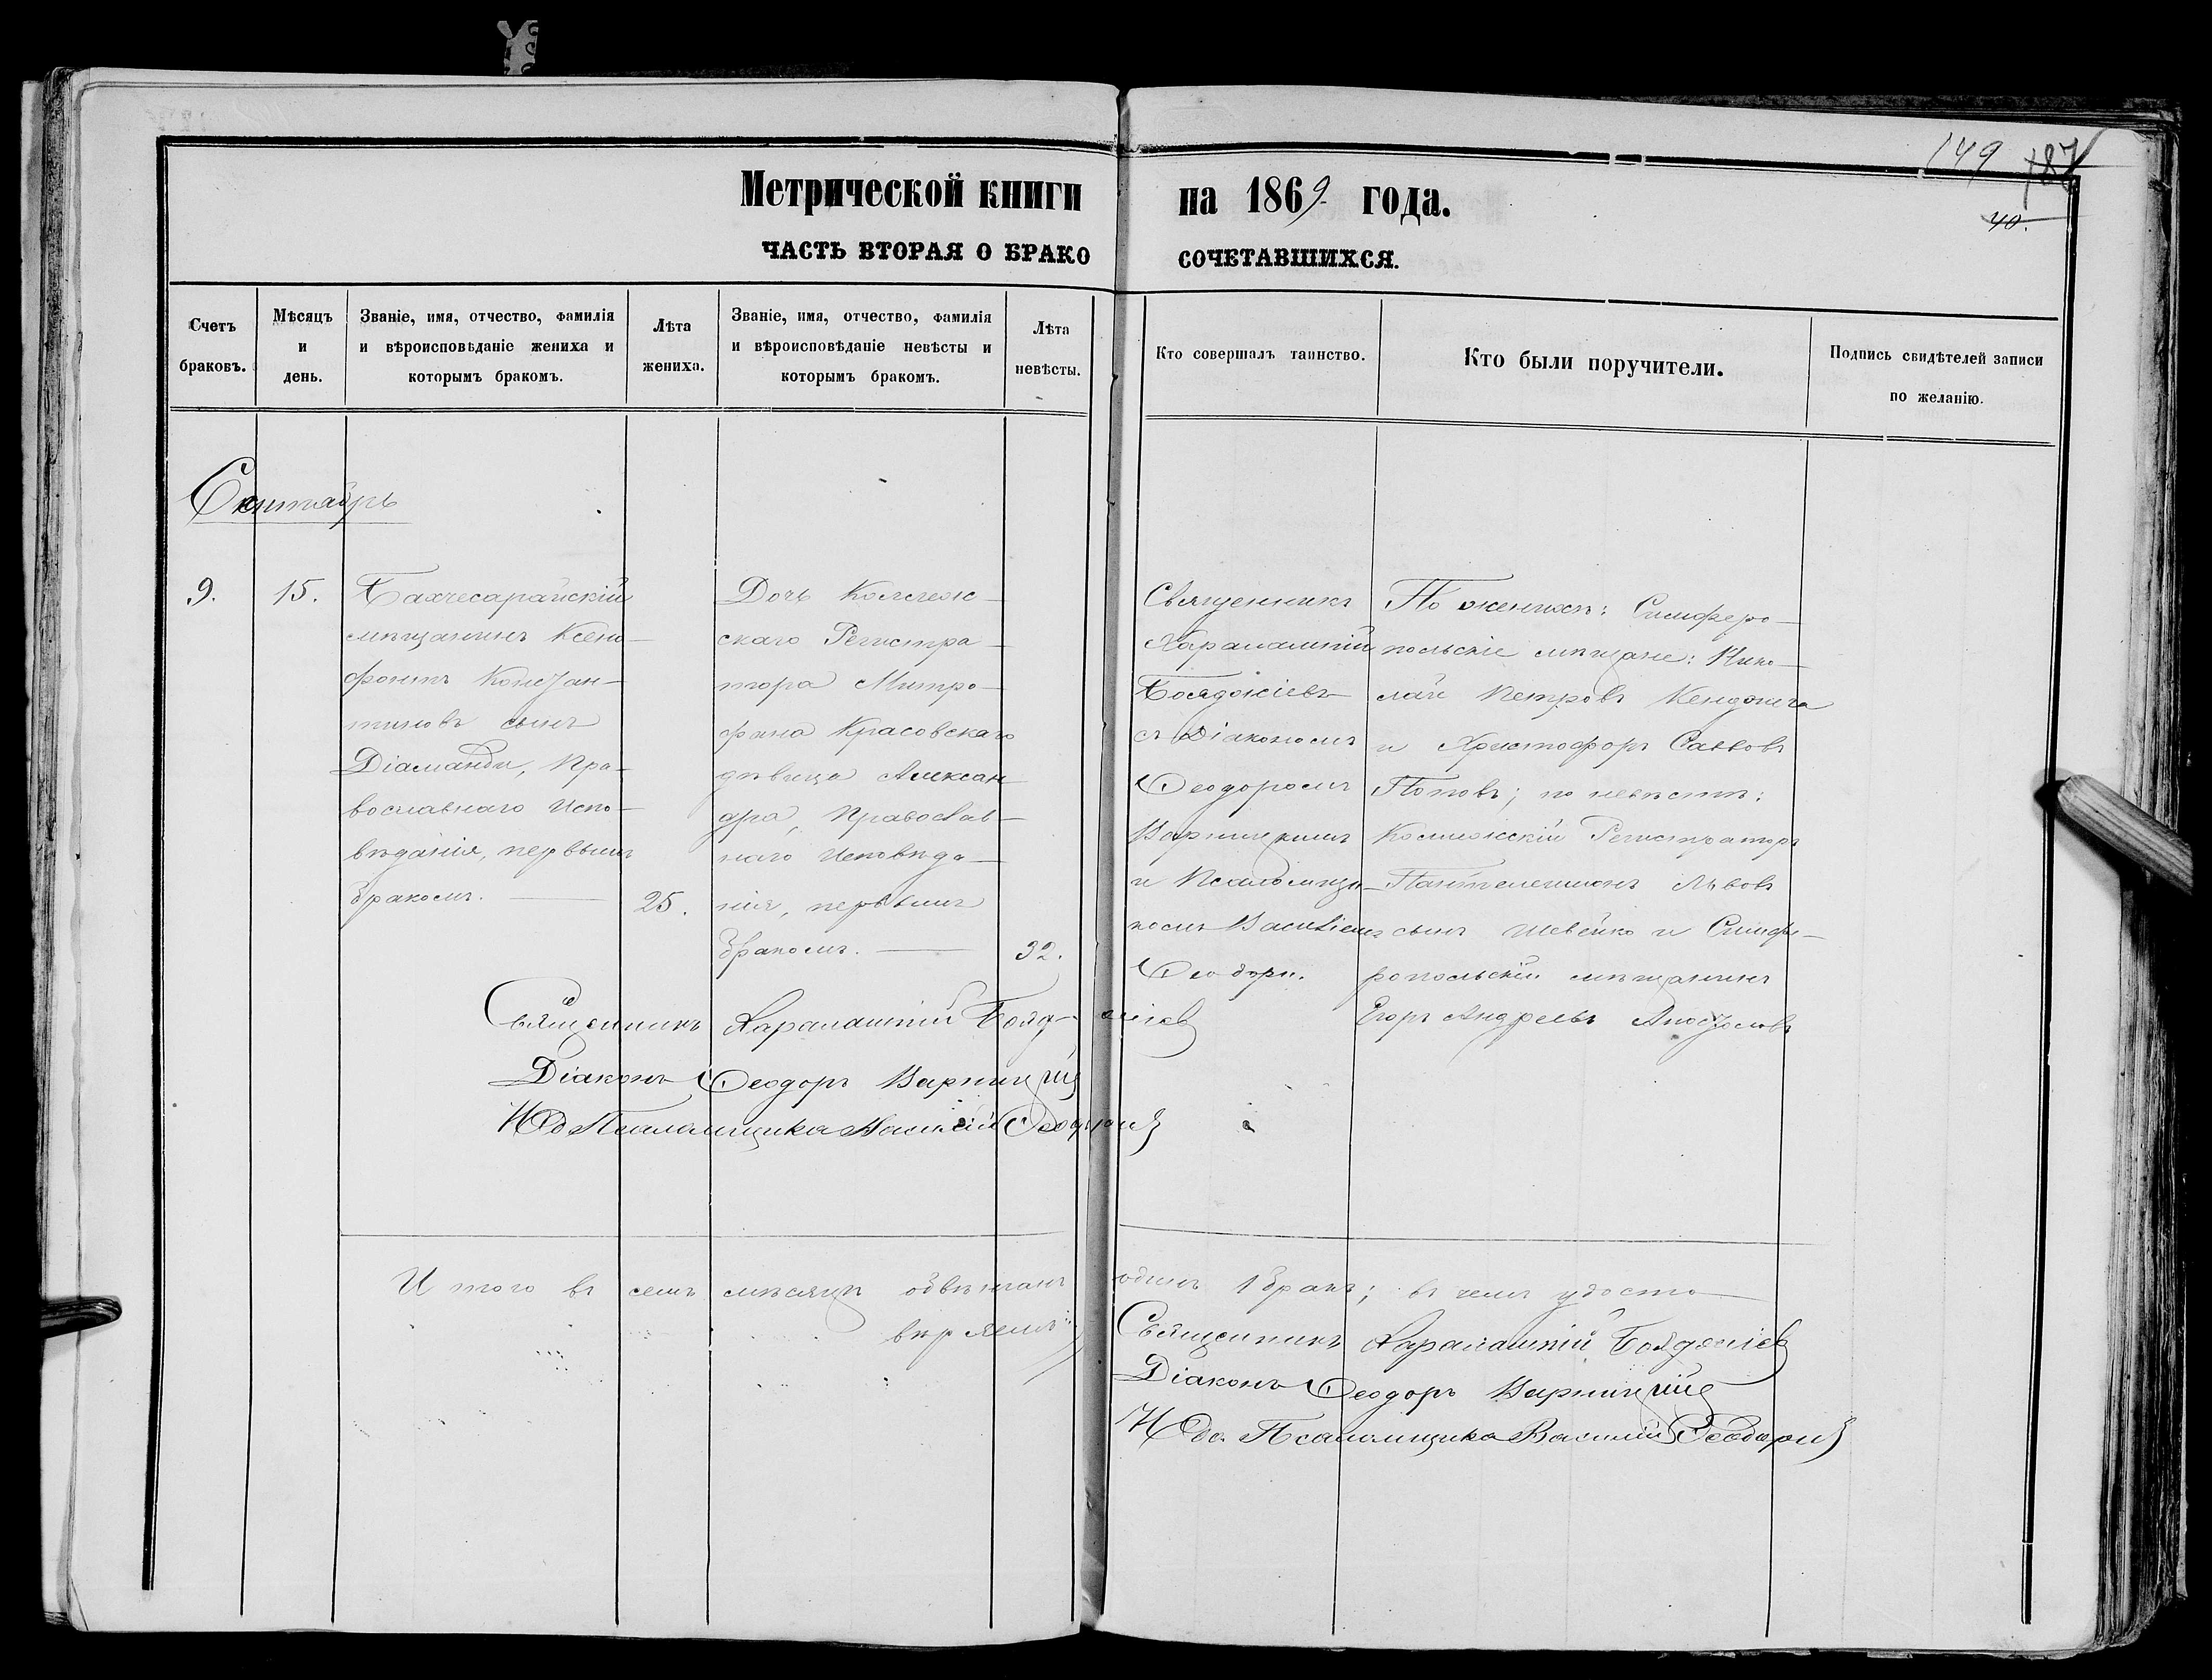 149 187
40.
Метрической книги на 1869. года.
ЧАСТЬ ВТОРАЯ О БРАКО СОЧЕТАВШИХСЯ.
Счетъ браковъ.
Мѣсяцъ и день.
Званіе, имя, отчество, фамилія
и вѣроисповѣданіе жениха и
которымъ бракомъ.
Лѣта жениха.
Званіе, имя, отчество, фамилія
и вѣроисповѣданіе невѣсты и
которымъ бракомъ.
Лѣта невѣсты.
Кто совершалъ таинство.
Кто были поручители.
Подпись свидѣтелей записи
по желанію.
Сентябрь
9.
15.
Бахчесарайскій
мѣщанинъ Ксено-
фонтъ Констан-
тиновъ сынъ
Діаманди, Пра-
вославнаго Испо-
вѣданія, первымъ
бракомъ. —
25.
Дочь Коллеж-
скаго Регистра-
тора Митро-
фана Красовскаго
дѣвица Алексан-
дра, Православ-
наго Исповѣда-
нія, первымъ
бракомъ. —
32.
Священникъ
Харалампій
Бояджіевъ
съ Діакономъ
Ѳеодоромъ
Варницкимъ
и Псаломщи-
комъ Василіемъ
Ѳеодори.
По женихѣ: Симферо-
польскіе мѣщане: Нико-
лай Петровъ Кенджига
и Христофоръ Саввовъ
Поповъ; по невѣстѣ:
Коллежскій Регистраторъ
Пантелеимонъ Львовъ
сынъ Шевейко и Симфе-
ропольскій мѣщанинъ
Егоръ Андреевъ Апостоловъ
Священникъ Харалампій Бояджіев
Діаконъ Ѳеодоръ Варницкій
И Од Псаломщика Василій Ѳеодори
Итого въ семъ мѣсяцѣ обвѣнчанъ одинъ 1 бракъ; въ чемъ удосто-
вѣряемъ:
Священникъ Харалампій Бояджіев
Діаконъ Ѳеодоръ Варницкій
И До. Псаломщика Василій Ѳеодори